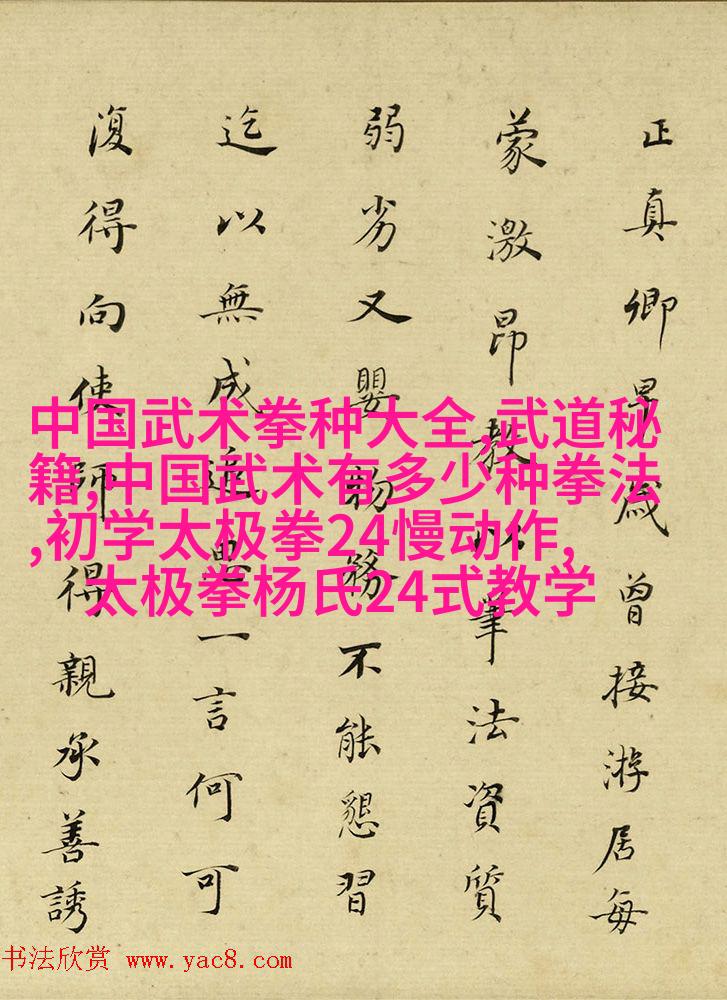 正真卿早歲曾接游居每
蒙激昂教以筆法資質
弱劣又嬰物務不能懇習
迄以無成追思一言何可
復得向使師得親承善誘
中国武术拳种大全,武道秘
籍,中国武术有多少种拳法
,初学太极拳24慢动作,
太极拳杨氏24式教学
书法欣赏 www.yac8.com